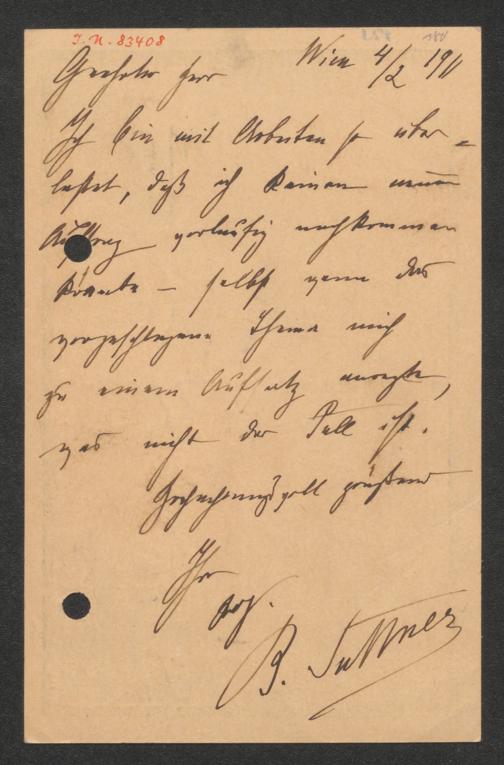 I.N. 83408
Geehrter Herr Wien 4/2 1911
Ich bin mit Arbeiten so über=
lastet, daß ich keinem neuen
Auftrag vorläufig nachkommen
könnte – selbst wenn das
vorgeschlagene Thema mich
zu einem Aufsatz anregte,
was nicht der Fall ist.
Hochachtungsvoll grüßend
Ihr
B. Suttner